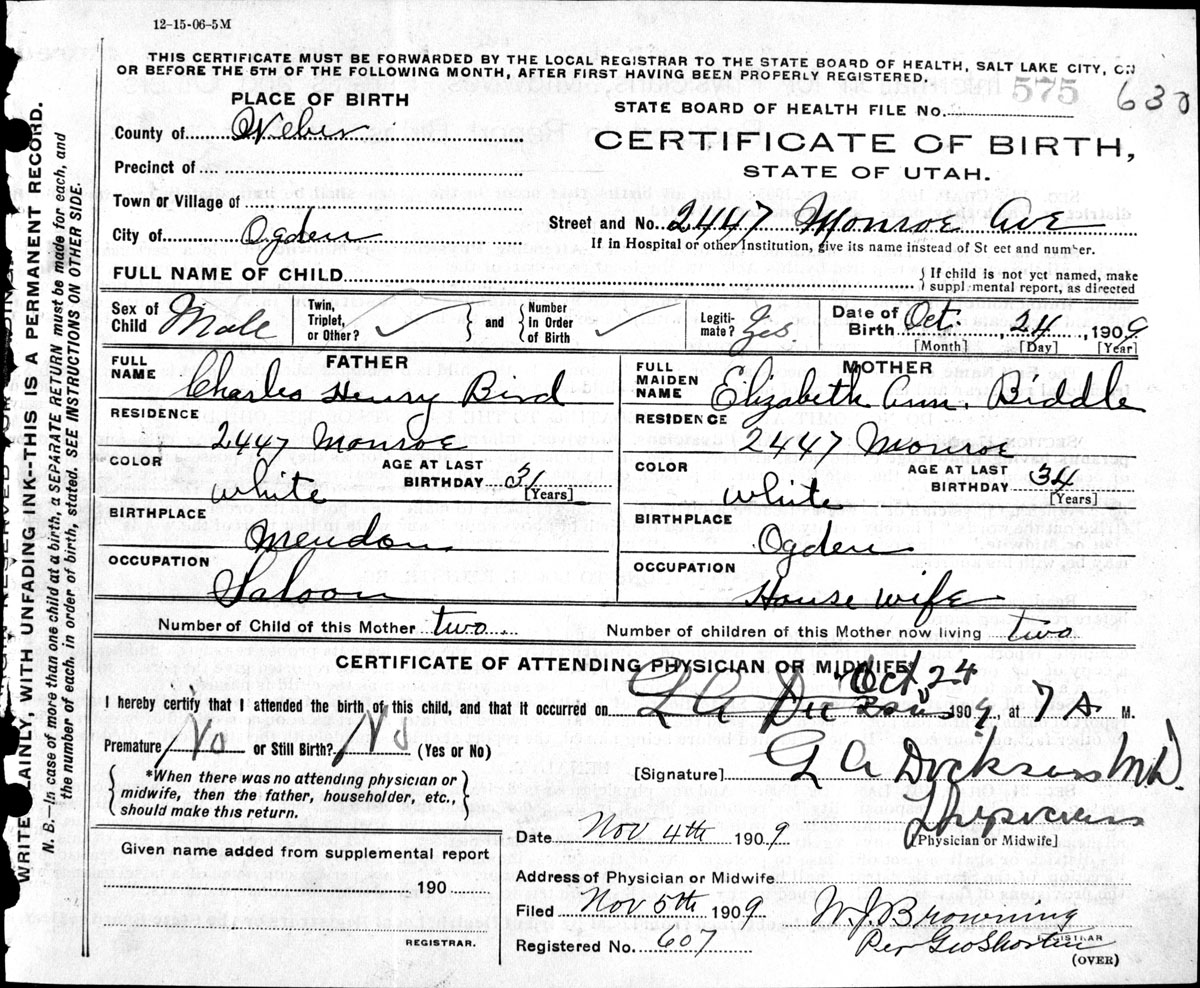 12-15-06-5M
THIS CERTIFICATE MUST BE FORWARDED BY THE LOCAL REGISTRAR TO THE STATE BOARD OF HEALTH, SALT LAKE CITY, ON
OR BEFORE THE 5TH OF THE FOLLOWING MONTH, AFTER FIRST HAVING BEEN PROPERLY REGISTERED.
PLACE OF BIRTH
STATE BOARD OF HEALTH FILE No. 575 630
County of Weber
CERTIFICATE OF BIRTH,
STATE OF UTAH.
Precinct of
Town or Village of
Street and No. 2447 Monroe Ave
City of Ogden
If in Hospital or other Institution, give its name instead of St eet and number.
FULL NAME OF CHILD
} If child is not yet named, make
suppl mental report, as directed
Sex of Child Male
Twin, Triplet, or Other? ✓ } and { Number in Order of Birth ✓
Legiti-mate? Yes
Date of Birth Oct. 24, 1909
[Month] [Day] [Year]
FATHER
FULL NAME Charles Henry Bird
RESIDENCE
2447 Monroe
COLOR
White
AGE AT LAST BIRTHDAY 31
[Years]
BIRTHPLACE
Mendon
OCCUPATION
Saloon
MOTHER
FULL MAIDEN NAME Elizabeth Ann. Biddle
RESIDENCE
2447 Monroe
COLOR
White
AGE AT LAST BIRTHDAY 34
[Years]
BIRTHPLACE
Ogden
OCCUPATION
House wife
Number of Child of this Mother two
Number of children of this Mother now living two
CERTIFICATE OF ATTENDING PHYSICIAN OR MIDWIFE
Oct, 24
I hereby certify that I attended the birth of this child, and that it occurred on 1909, at 7 a M.
Premature? No or Still Birth? No (Yes or No)
*When there was no attending physician or
midwife, then the father, householder, etc.,
should make this return.
[Signature]
Physician
[Physician or Midwife]
Date Nov 4th 1909
Given name added from supplemental report
190
REGISTRAR.
Address of Physician or Midwife
Filed Nov 5th 1909
W.J. Browning
Registered No. 607
Per Geo Shorten
REGISTRAR
(OVER)
WRITE LAINLY, WITH UNFADING INK--THIS IS A PERMANENT RECORD.
N. B.—In case of more than one child at a birth, a SEPARATE RETURN must be made for each, and
the number of each, in order of birth, stated. SEE INSTRUCTIONS ON OTHER SIDE.